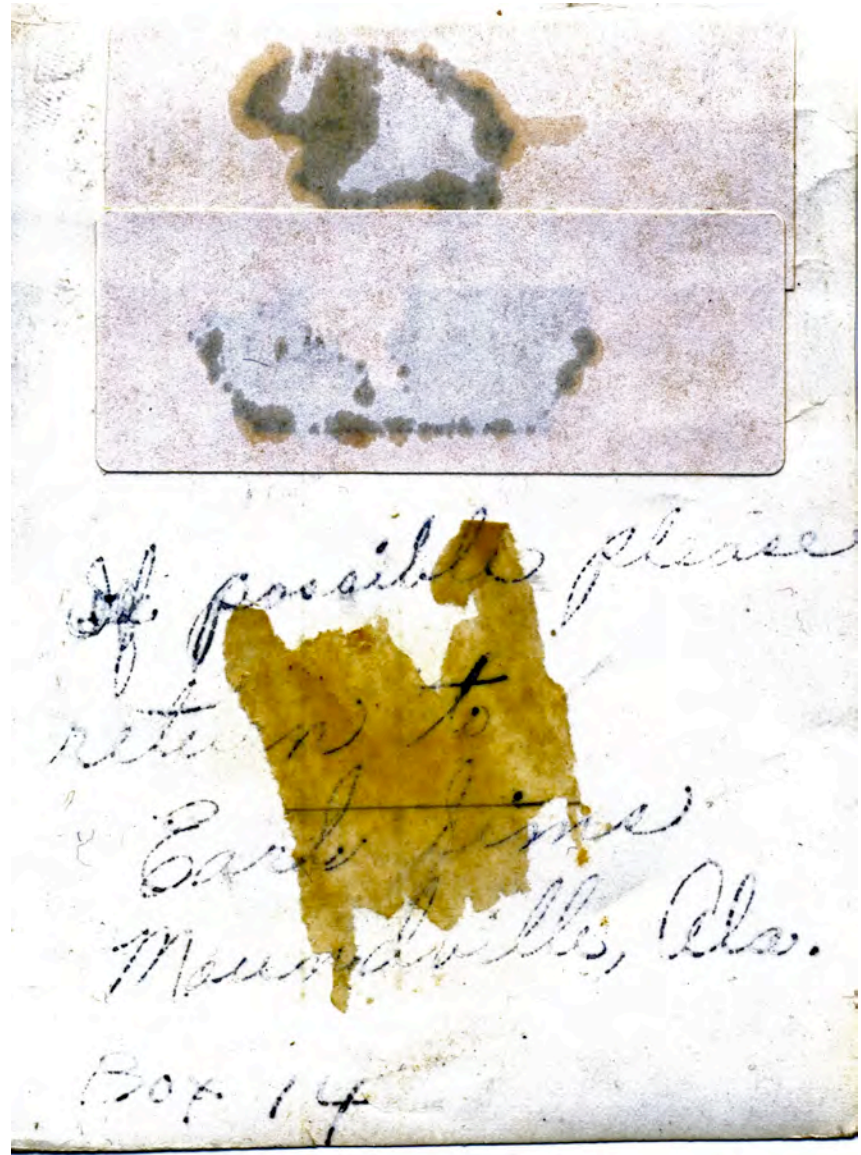 If possible please
return to
Earl Sims
Moundville, Ala.
Box 14